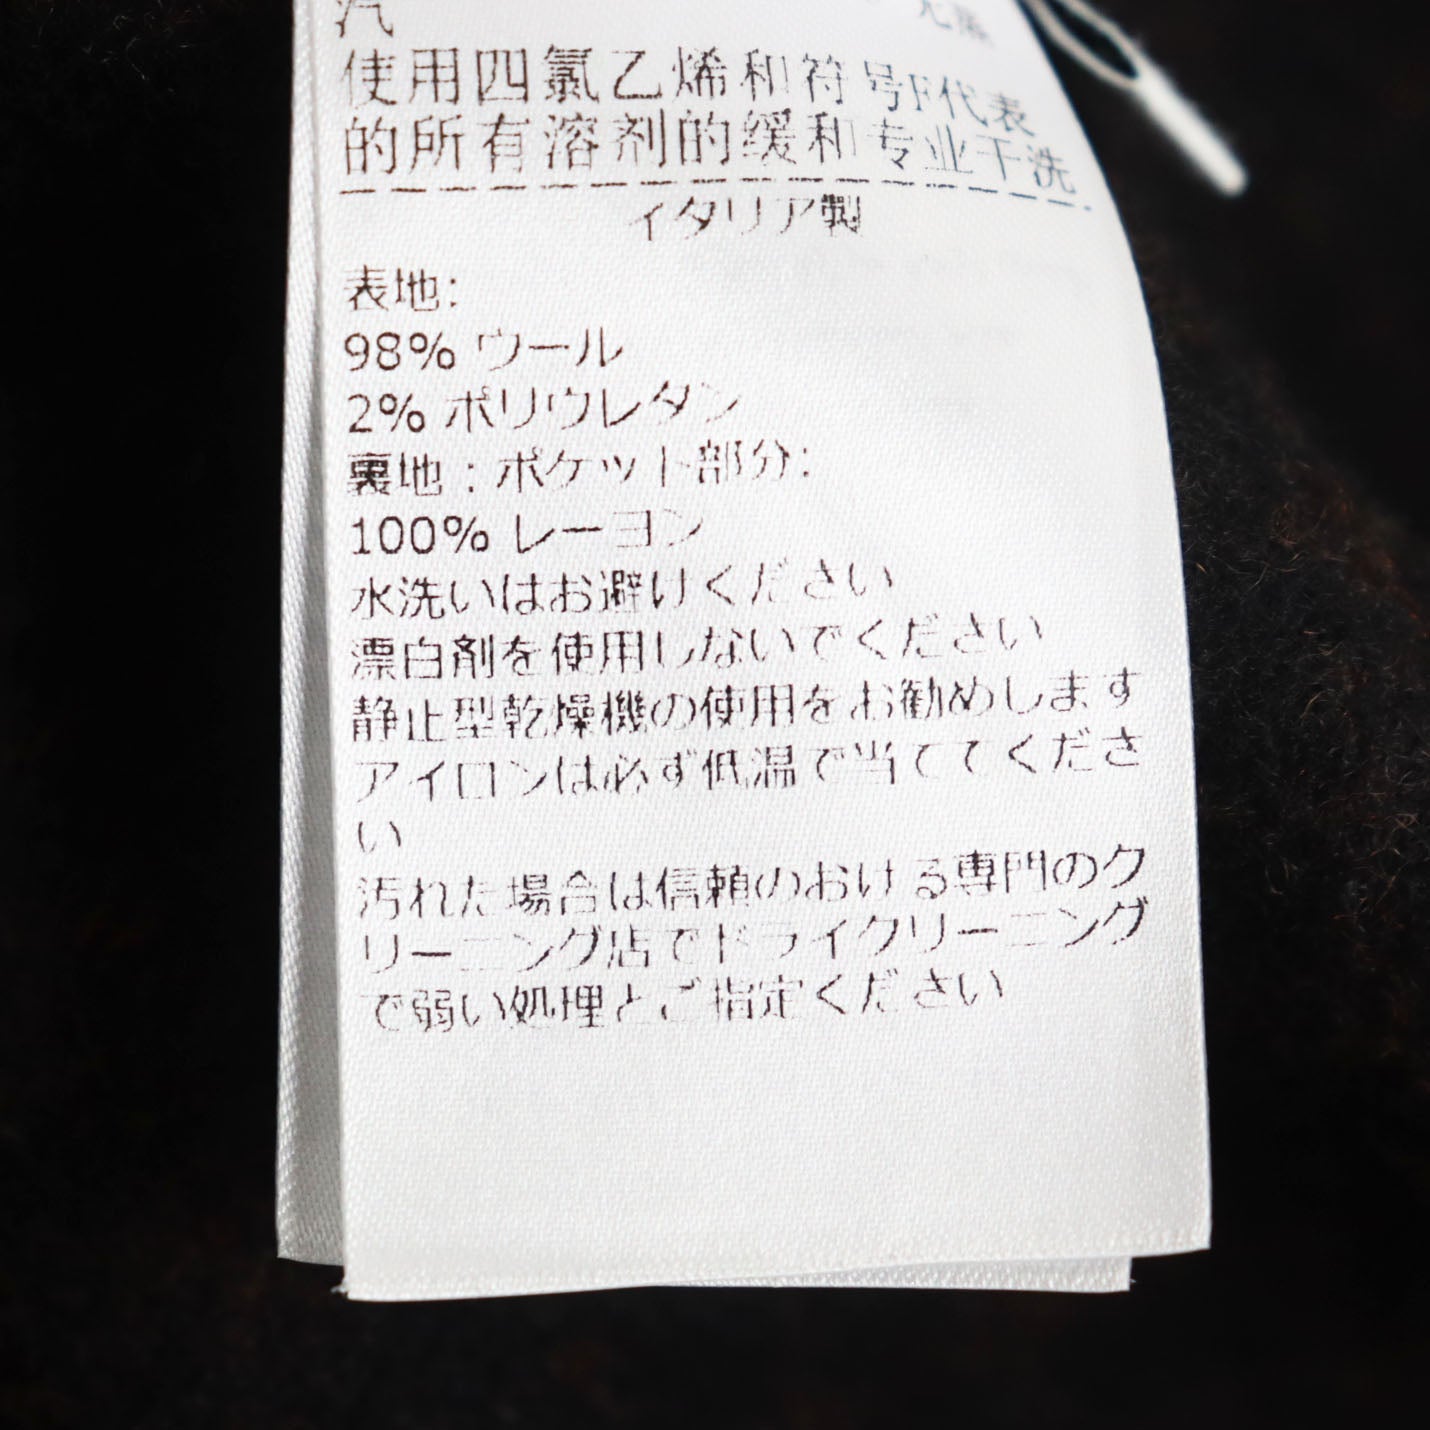 汽
使用四氯乙烯和符号F代表
的所有溶剂的缓和专业干洗
イタリア製
表地:
98% ウール
2% ポリウレタン
裏地:ポケット部分:
100% レーヨン
水洗いはお避けください
漂白剤を使用しないでください
静止型乾燥機の使用をお勧めします
アイロンは必ず低温で当ててくださ
い
汚れた場合は信頼のおける専門のク
リーニング店でドライクリーニング
で弱い処理とご指定ください